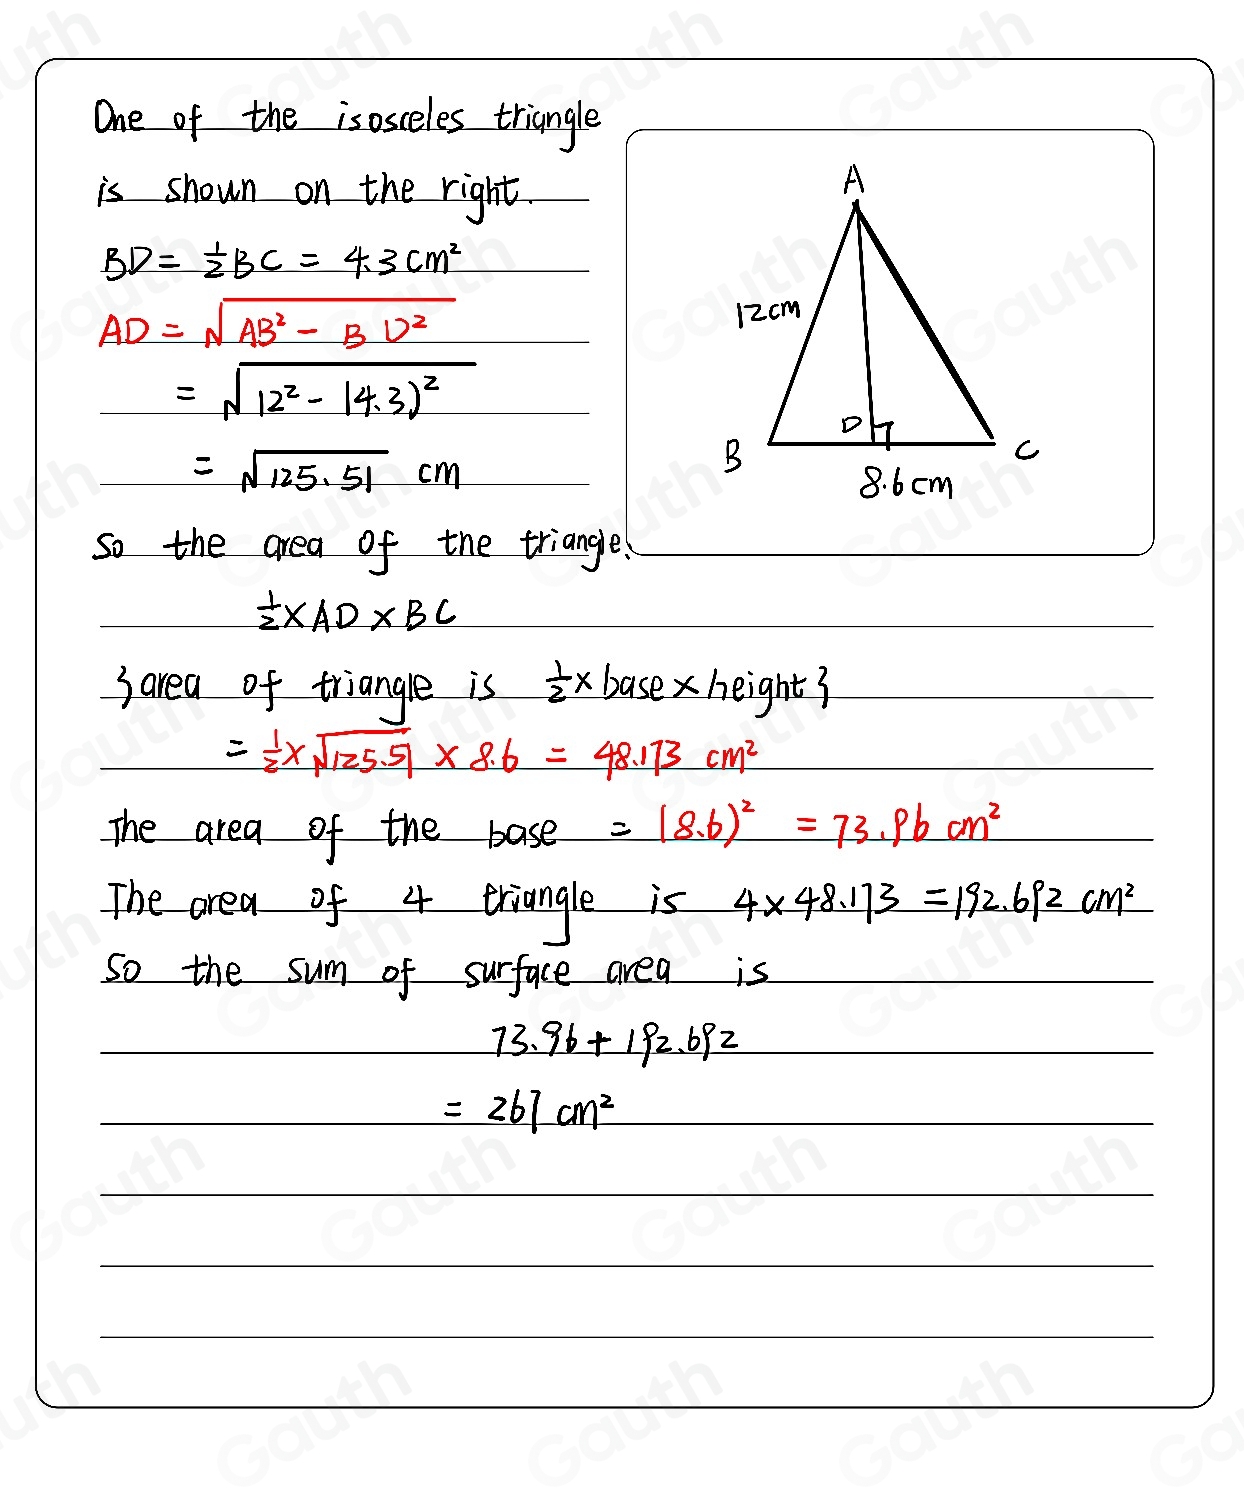 One of the isosceles triangle
is shown on the right.
BD = 1/2 BC = 4.3 cm²
AD = √(AB² - BD²)
= √(12² - (4.3)²
= √125.51 cm
So the area of the triangle.
1/2 × AD × BC
} area of triangle is 1/2 × base × height }
= 1/2 × √125.51 × 8.6 = 48.173 cm²
The area of the base = (8.6)² = 73.96 cm²
The area of 4 triangle is 4 × 48.173 = 192.692 cm²
So the sum of surface area is
73.96 + 192.692
= 267 cm²
A
12cm
B
D
C
8.6 cm
Gauth